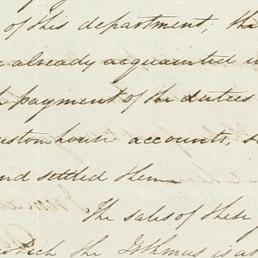 of this department, the
already acquainted
payment of the duties
custom house accounts, s
and settled them
The sales of these
which the Isthmus is a